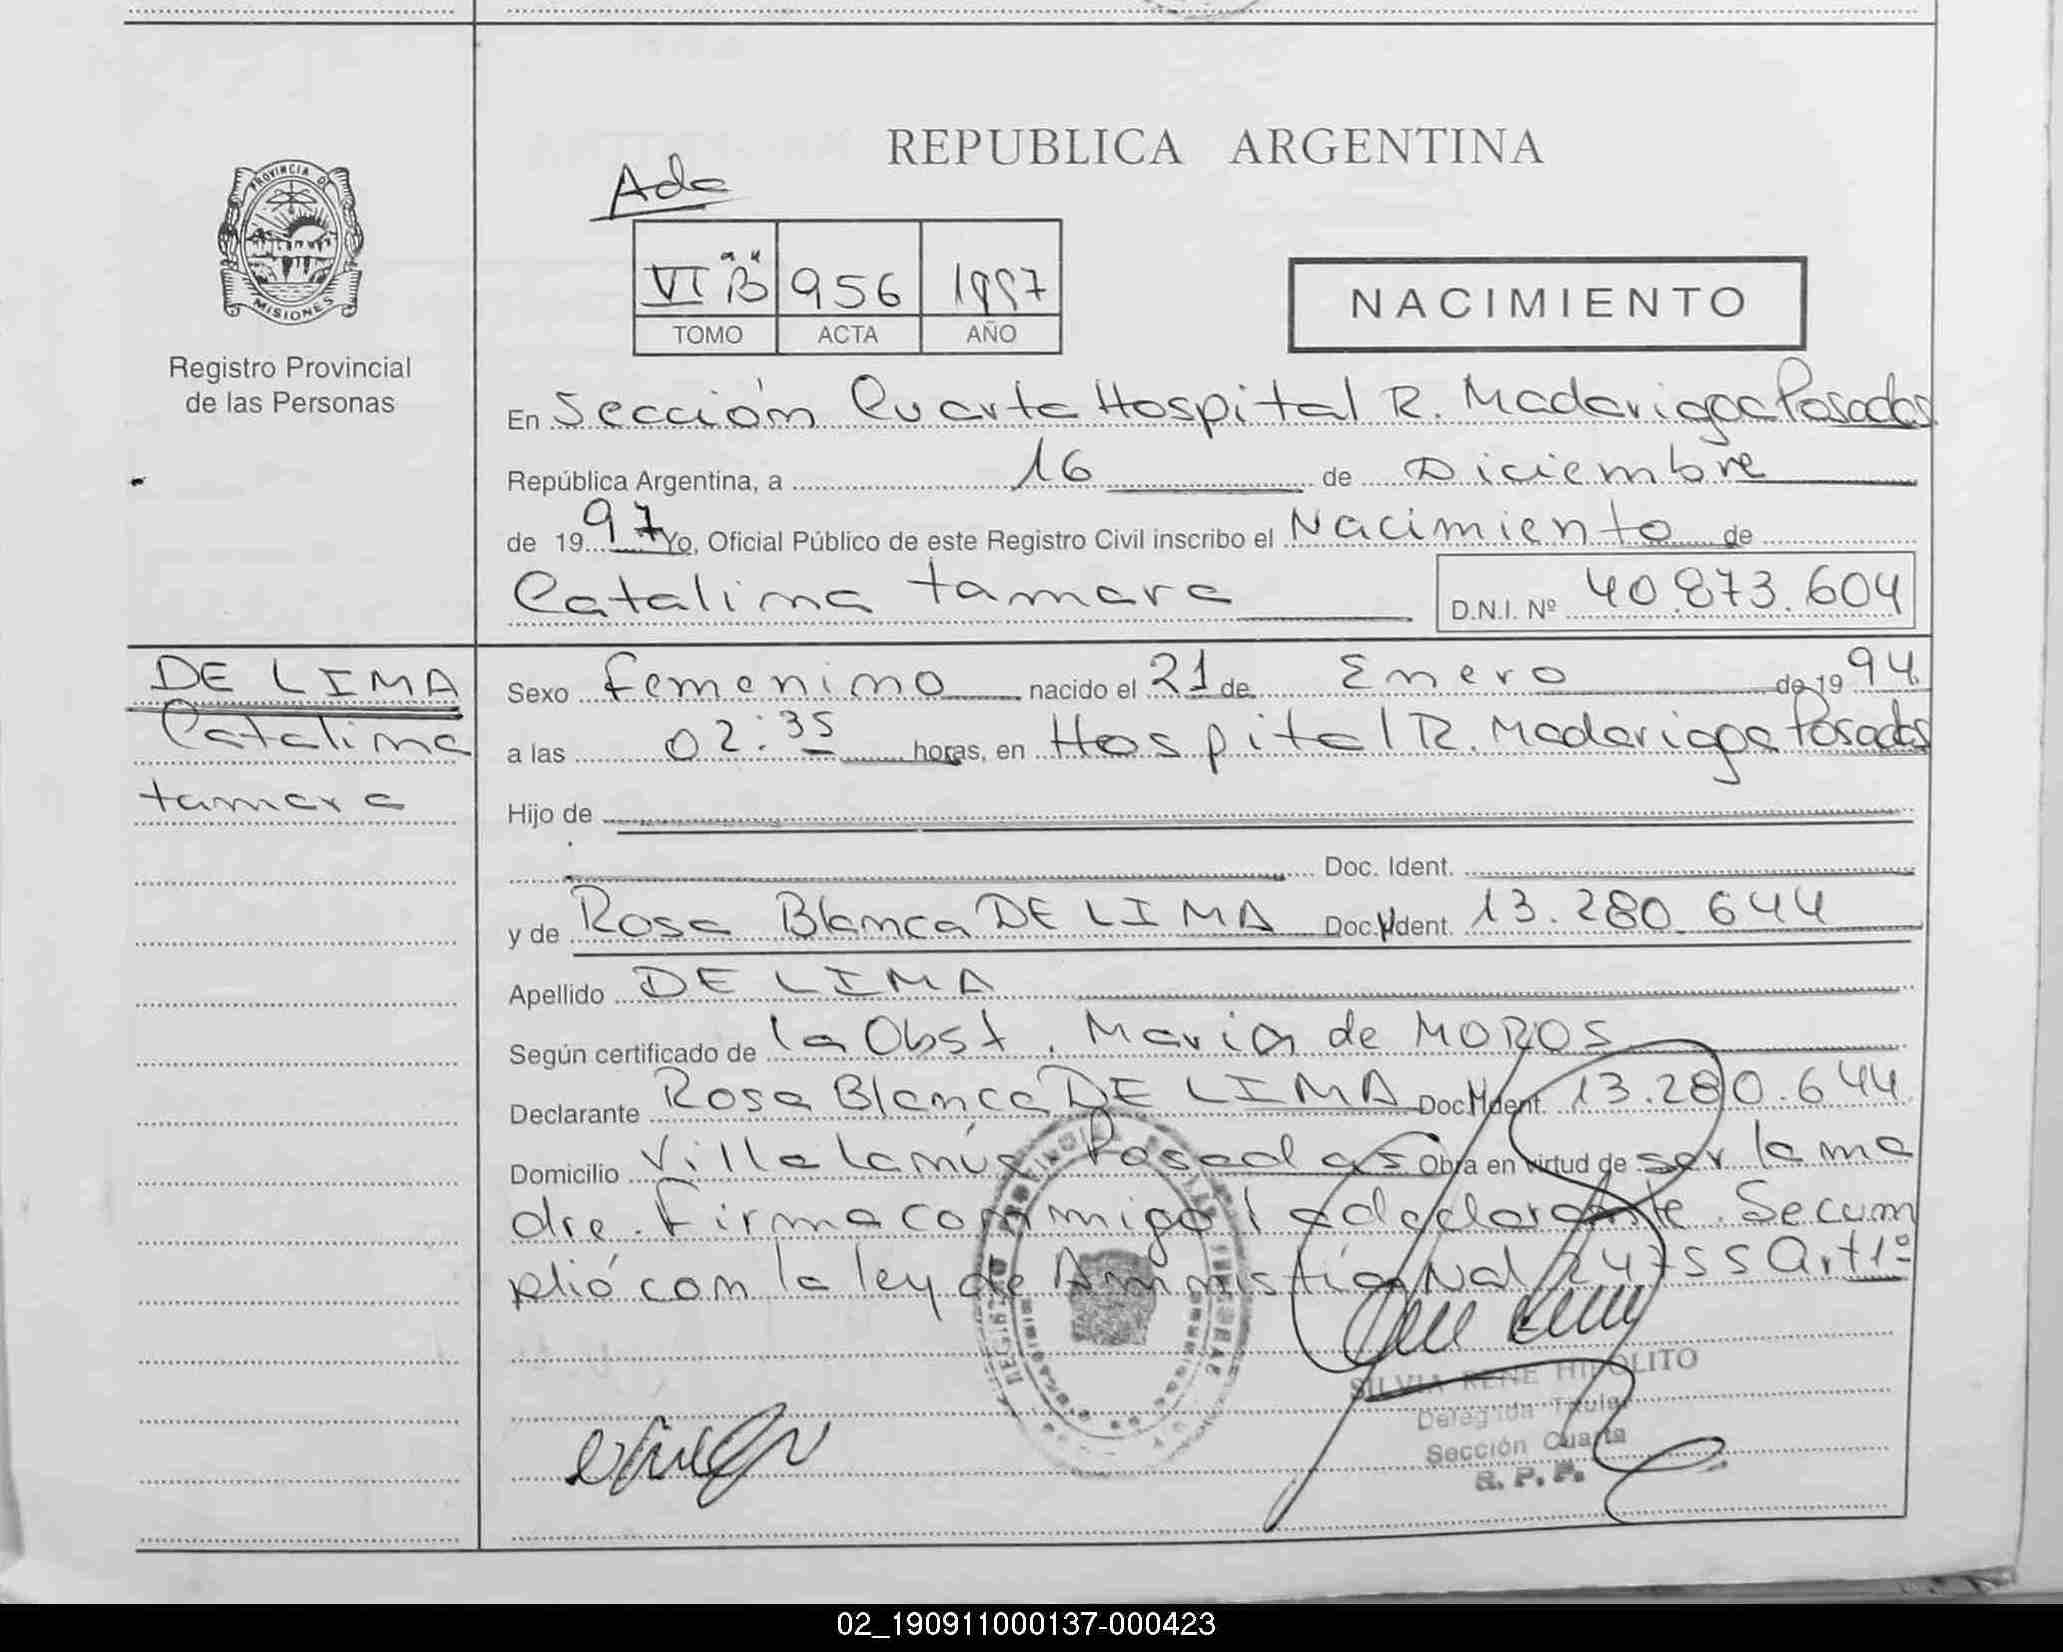 REPUBLICA ARGENTINA
PROVINCIA D
MISIONES
Registro Provincial
de las Personas
Ada
VI "B" 956 1997
TOMO ACTA AÑO
NACIMIENTO
En Sección Cuarta Hospital R. Madariaga Posadas
República Argentina, a 16 de Diciembre
de 1997 Yo, Oficial Público de este Registro Civil inscribo el Nacimiento de
Catalina tamara D.N.I. Nº 40.873.604
DE LIMA
Catalina
tamara
Sexo femenino nacido el 21 de Enero de 1994
a las 02:35 horas, en Hospital R. Madariaga Posadas
Hijo de
Doc. Ident.
y de Rosa Blanca DE LIMA Doc. Ident. 13.280.644
Apellido DE LIMA
Según certificado de la Obst. Maria de MOROS
Declarante Rosa Blanca DE LIMA Doc. Ident. 13.280.644
Domicilio Villa Lanús Posadas Obra en virtud de ser la ma
dre. Firma conmigo la declarante. Secum
plió con la ley de Amnistía Nal 24755 Art 1º
SILVIA RENE HIPOLITO
Delegada Titular
Sección Cuarta
R. P. P.
02_190911000137-000423